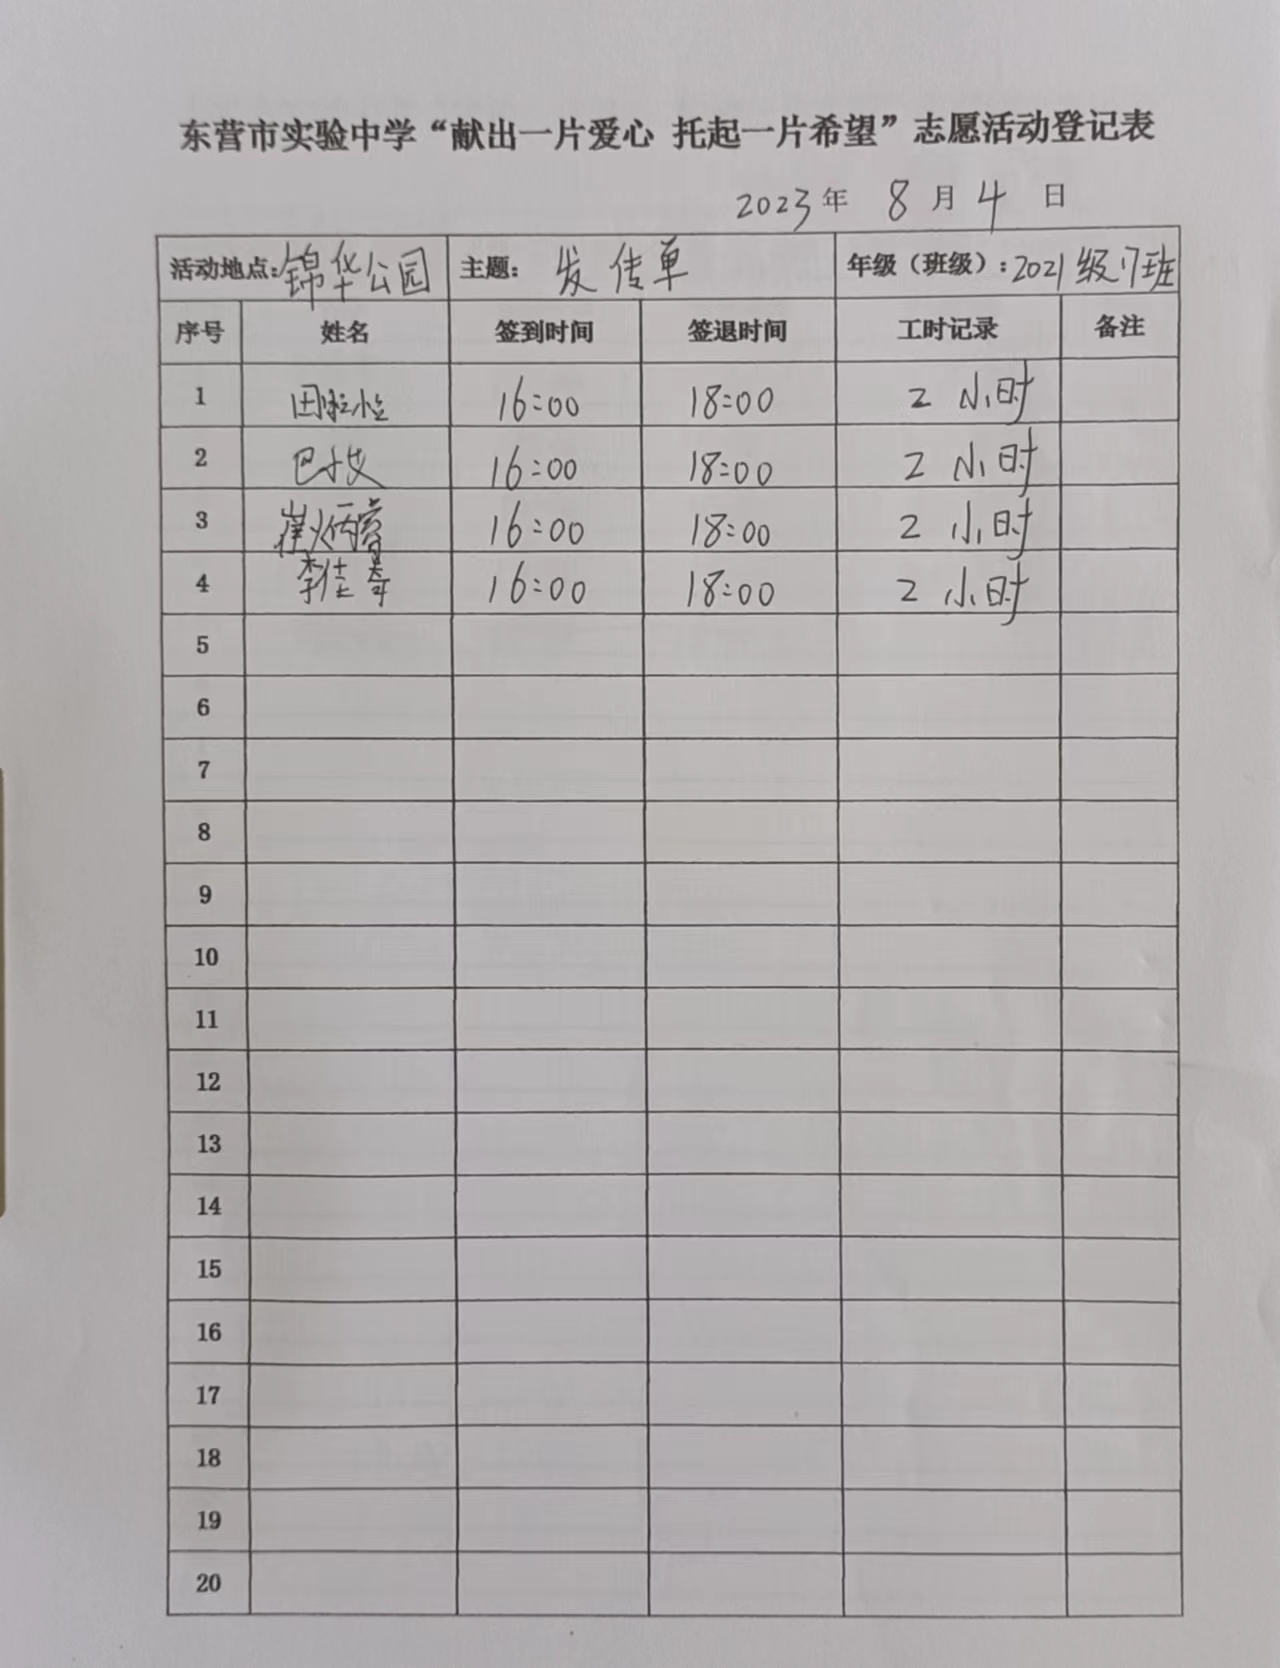 东营市实验中学“献出一片爱心 托起一片希望”志愿活动登记表
2023年 8月4日
活动地点:锦华公园 主题：发传单 年级（班级）：2021级17班
序号 姓名 签到时间 签退时间 工时记录 备注
1 田 16:00 18:00 2小时
2 巴 16:00 18:00 2小时
3 崔炳睿 16:00 18:00 2小时
4 李佳奇 16:00 18:00 2小时
5
6
7
8
9
10
11
12
13
14
15
16
17
18
19
20